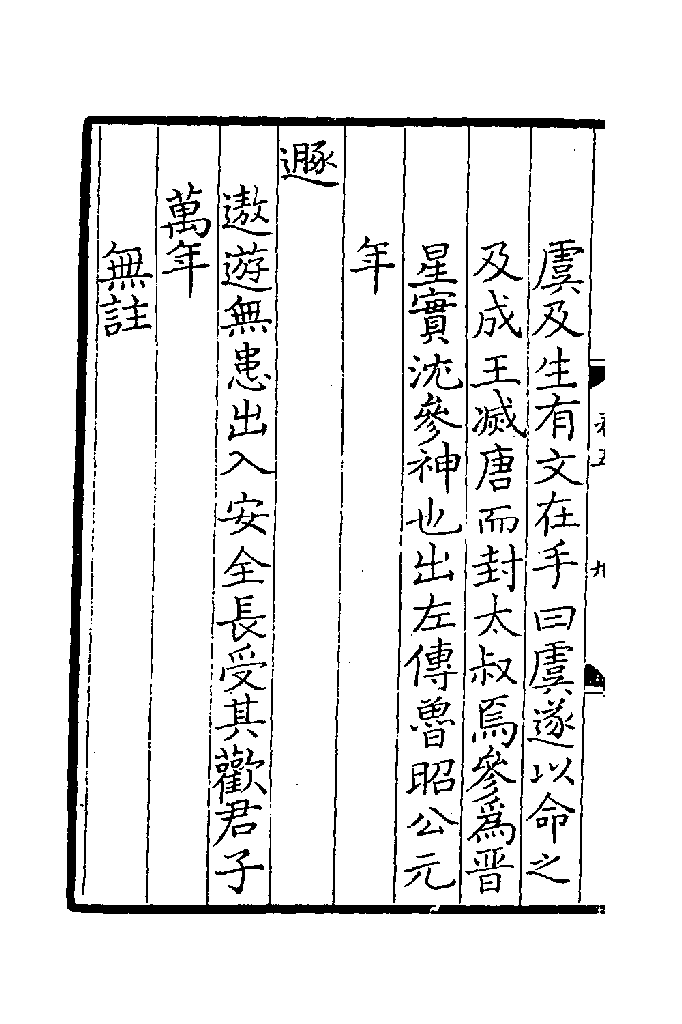 虞及生有文在手曰虞遂以命之
及成王滅唐而封太叔焉參為晋
星實沈參神也出左傳魯昭公元
年
遯
遨遊無患出入安全長受其歡君子
萬年
無註